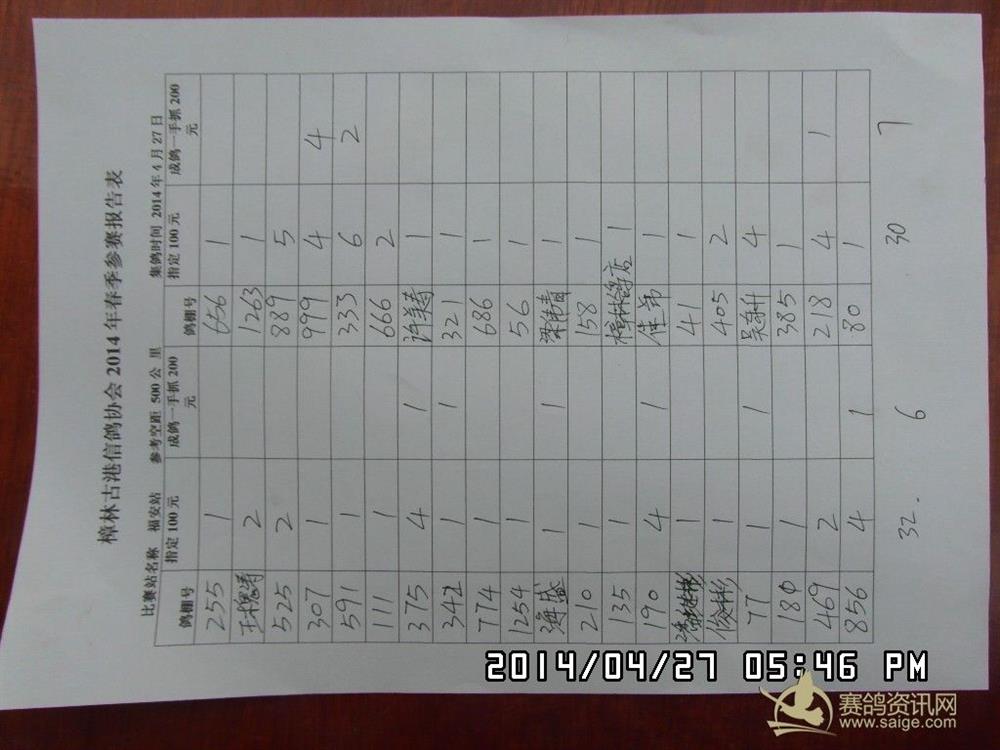 樟林古港信鸽协会2014年春季参赛报告表
比赛站名称 福安站 参考空距 500 公里 集鸽时间 2014年4月27日
鸽棚号 指定100元 成鸽一手抓200元 鸽棚号 指定100元 成鸽一手抓200元
255 1 656 1
2 1263 1
525 2 889 5
307 1 999 4 4
591 1 333 6 2
111 1 666 2
375 4 1 许美涛 1
342 1 1 321 1
774 1 686 1
1254 1 56 1
海盛 1 1 梁伟青 1
210 1 158 1
135 1 樟林鸽店 1
190 4 1 佳弟 1
1 41 1
俊彬 1 405 2
77 1 1 4
180 1 385 1
469 2 218 4 1
856 4 1 80 1
32. 6 30 7
2014/04/27 05:46 PM
赛鸽资讯网
www.saige.com